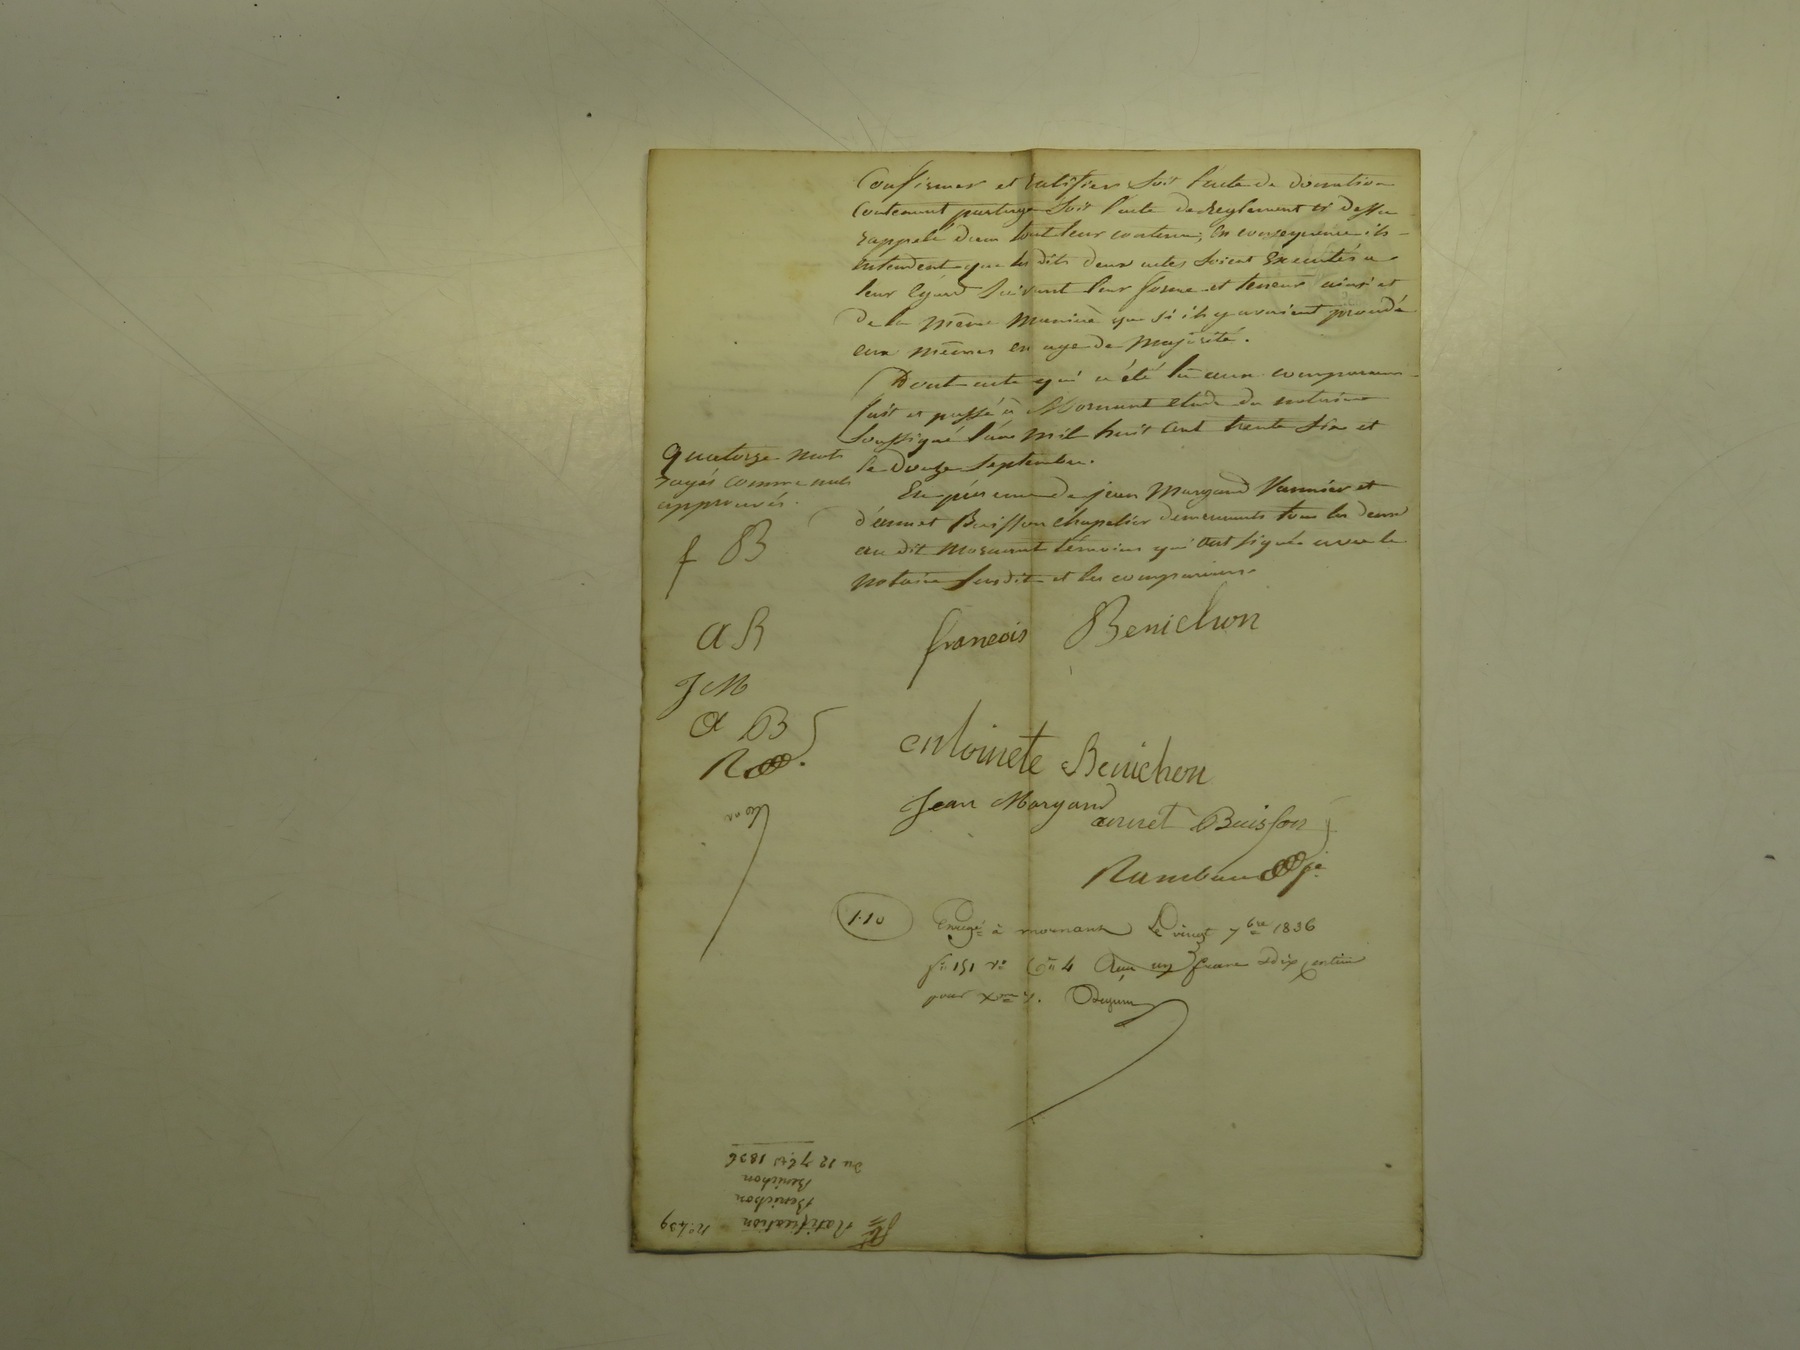 Confirmer et ratifier soit l'acte de donation
contenant partage soit l'acte de reglement ci dessus
rappelé dans tout leur contenu, en consequence ils
entendent que les dits deux actes soient Executés a
leur égard suivant leur forme et teneur ainsi et
de la même maniere que si ils y avaient procédé
eux mêmes en age de majorité.
Dont acte qui a été lu aux comparans
fait et passé à Mornant etude du notaire
soussigné l'an mil huit cent trente six et
le douze septembre.
En présence de jean Margand Vannier et
d'annet Buisson chapelier demeurants tous les deux
au dit Mornant témoins qui ont signé avec le
notaire susdit et les comparans.
quatorze mots
rayés comme nuls
approuvés.
f B
a B
J M
a B
R
francois Benichon
entoinete Benichon
Jean Margand
annet Buisson
Rambaud
1.10
Enregé à mornant Le vingt 7bre 1836
fo 151 Ro Ce 4 Reçu un franc dix centimes
pour
no 439
Ratification
Benichon
Benichon
Du 12 7bre 1836